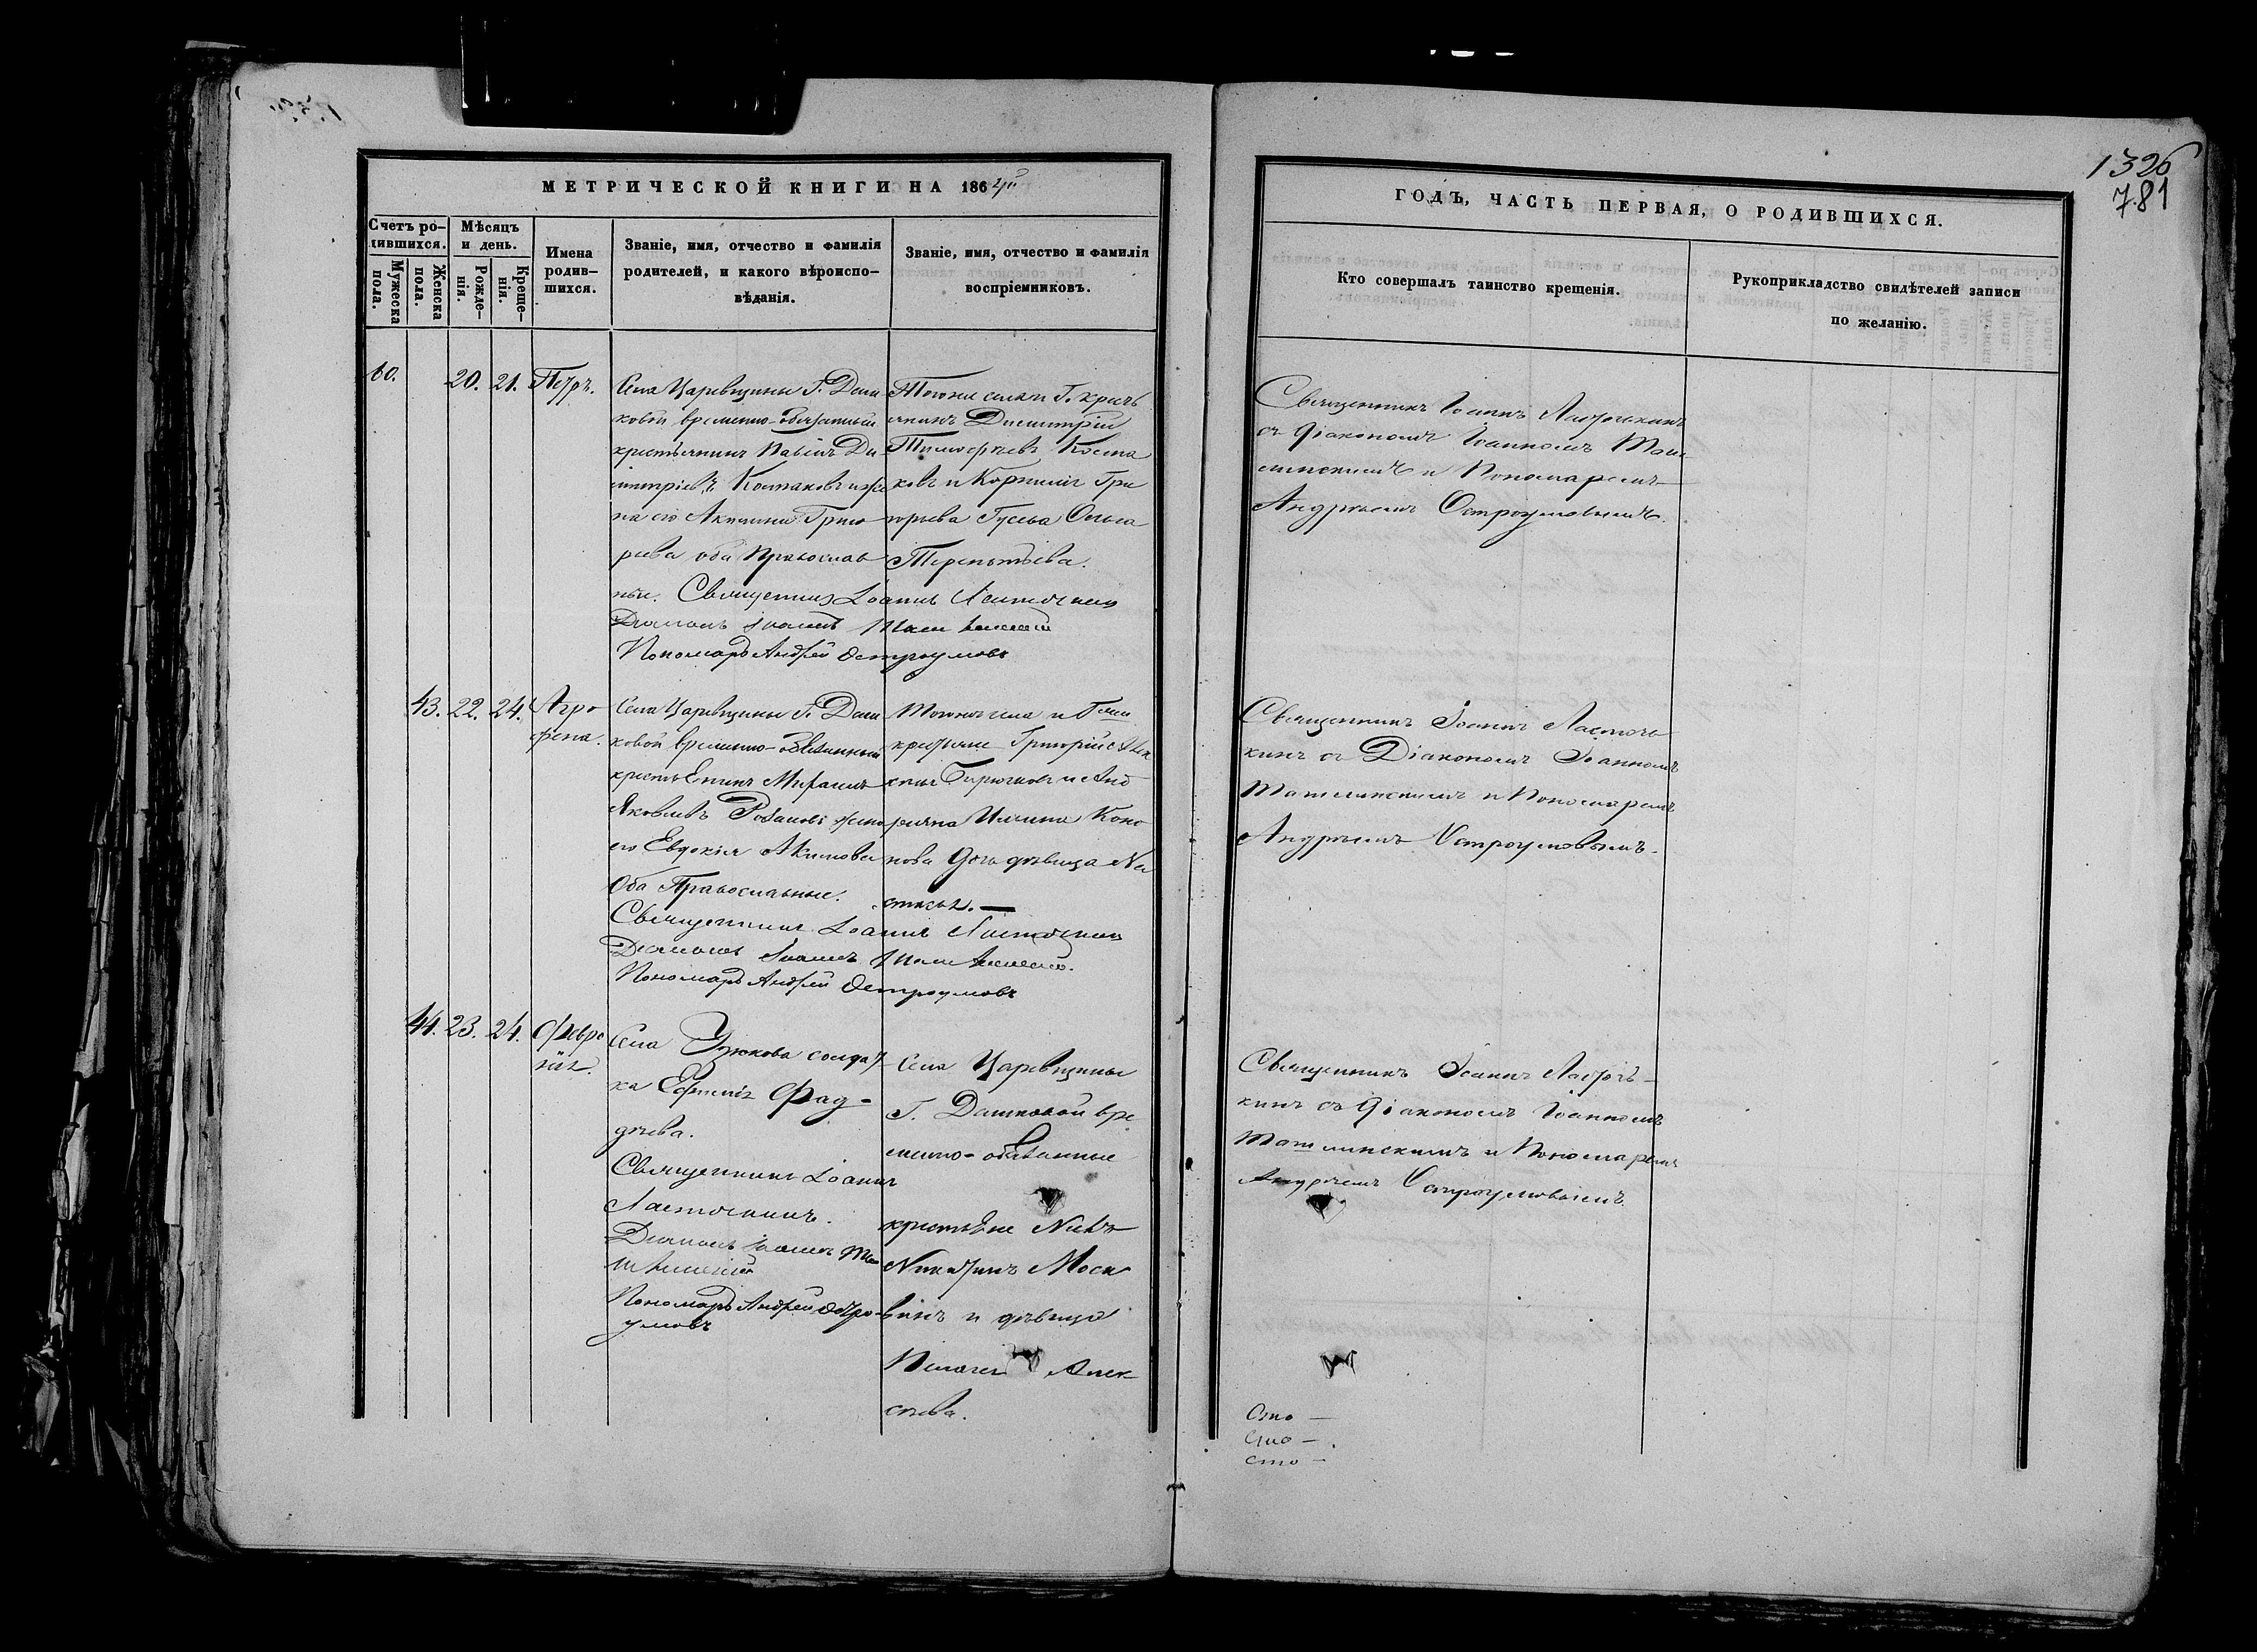 1326
781
МЕТРИЧЕСКОЙ КНИГИ НА 1864й
ГОДЪ, ЧАСТЬ ПЕРВАЯ, О РОДИВШИХСЯ.
Счетъ ро-
дившихся.
Мужеска
пола.
Женска
пола.
Мѣсяцъ
и день.
Рожде-
нія.
Креще-
нія.
Имена
родив-
шихся.
Званіе, имя, отчество и фамилія
родителей, и какого вѣроиспо-
вѣданія.
Званіе, имя, отчество и фамилія
воспріемниковъ.
Кто совершалъ таинство крещенія.
Рукоприкладство свидѣтелей записи
по желанію.
60. 20. 21. Петръ.
Села Царевщины Г. Даш
ковой временно-обязанный
крестьянинъ Павелъ Ди
митріевъ Колпаковъ и же
на его Акилина Григо
рьева оба Православ
ные. Священникъ Іоаннъ Ласточкинъ
Діаконъ Іоаннъ
Пономарь Андрей Остроумовъ
Тогоже села и Г. кресть
янинъ Димитрій
Тимофѣевъ
ковъ и Гри
горьева
Терентьева.
Священникъ Іоаннъ Ласточкинъ
съ Діакономъ Іоанномъ Таш
линскимъ и Пономаремъ
Андреемъ Остроумовымъ.
43. 22. 24. Агро
фена.
Села Царевщины Г. Даш
ковой временно-обязанный
крестьянинъ
Яковлевъ жена
его Евдокія Акимова
Оба Православные.
Священникъ Іоаннъ Ласточкинъ
Діаконъ Іоаннъ
Пономарь Андрей Остроумовъ
Тогоже села и Г-жи
крестьяне Григорій Алек
сѣевъ Бирючковъ и Анд
Ильина Коно
нова дочь дѣвица На
стасья.
Священникъ Іоаннъ Ласточ
кинъ съ Діакономъ Іоанномъ
Ташлинскимъ и Пономаремъ
Андреемъ Остроумовымъ.
44. 23. 24. Февро
нія.
Села Узюкова солдат
ка Ефимія Фад-
дѣева.
Священникъ Іоаннъ
Ласточкинъ.
Діаконъ Іоаннъ Таш
линскій
Пономарь Андрей Остро-
умовъ
Села Царевщины
Г. Дашковой вре
менно-обязанные
крестьяне
Никитинъ Моск
винъ и дѣвица
Пелагея Алек
сѣева.
Священникъ Іоаннъ Ласточ-
кинъ съ Діакономъ Іоанномъ
Ташлинскимъ и Пономаремъ
Андреемъ Остроумовымъ.